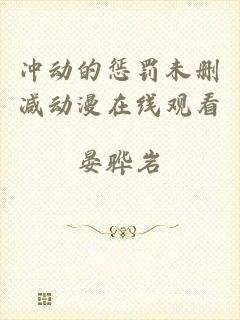 冲动的惩罚未删
减动漫在线观看
晏骅岩